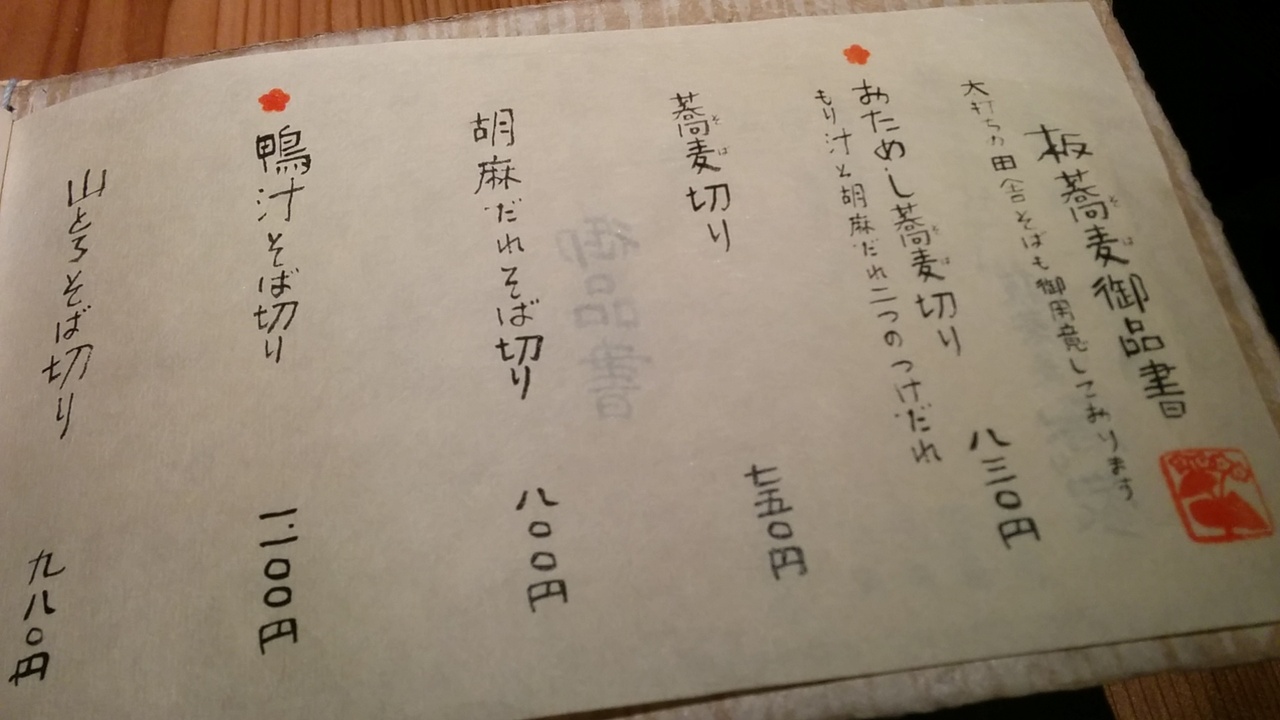 板蕎麦御品書
大打ちの田舎そばも御用意してあります
おためし蕎麦切り 八三〇円
もり汁と胡麻だれ二つのつけだれ
蕎麦切り 七五〇円
胡麻だれそば切り 八〇〇円
鴨汁そば切り 一、一〇〇円
山とろそば切り 九八〇円